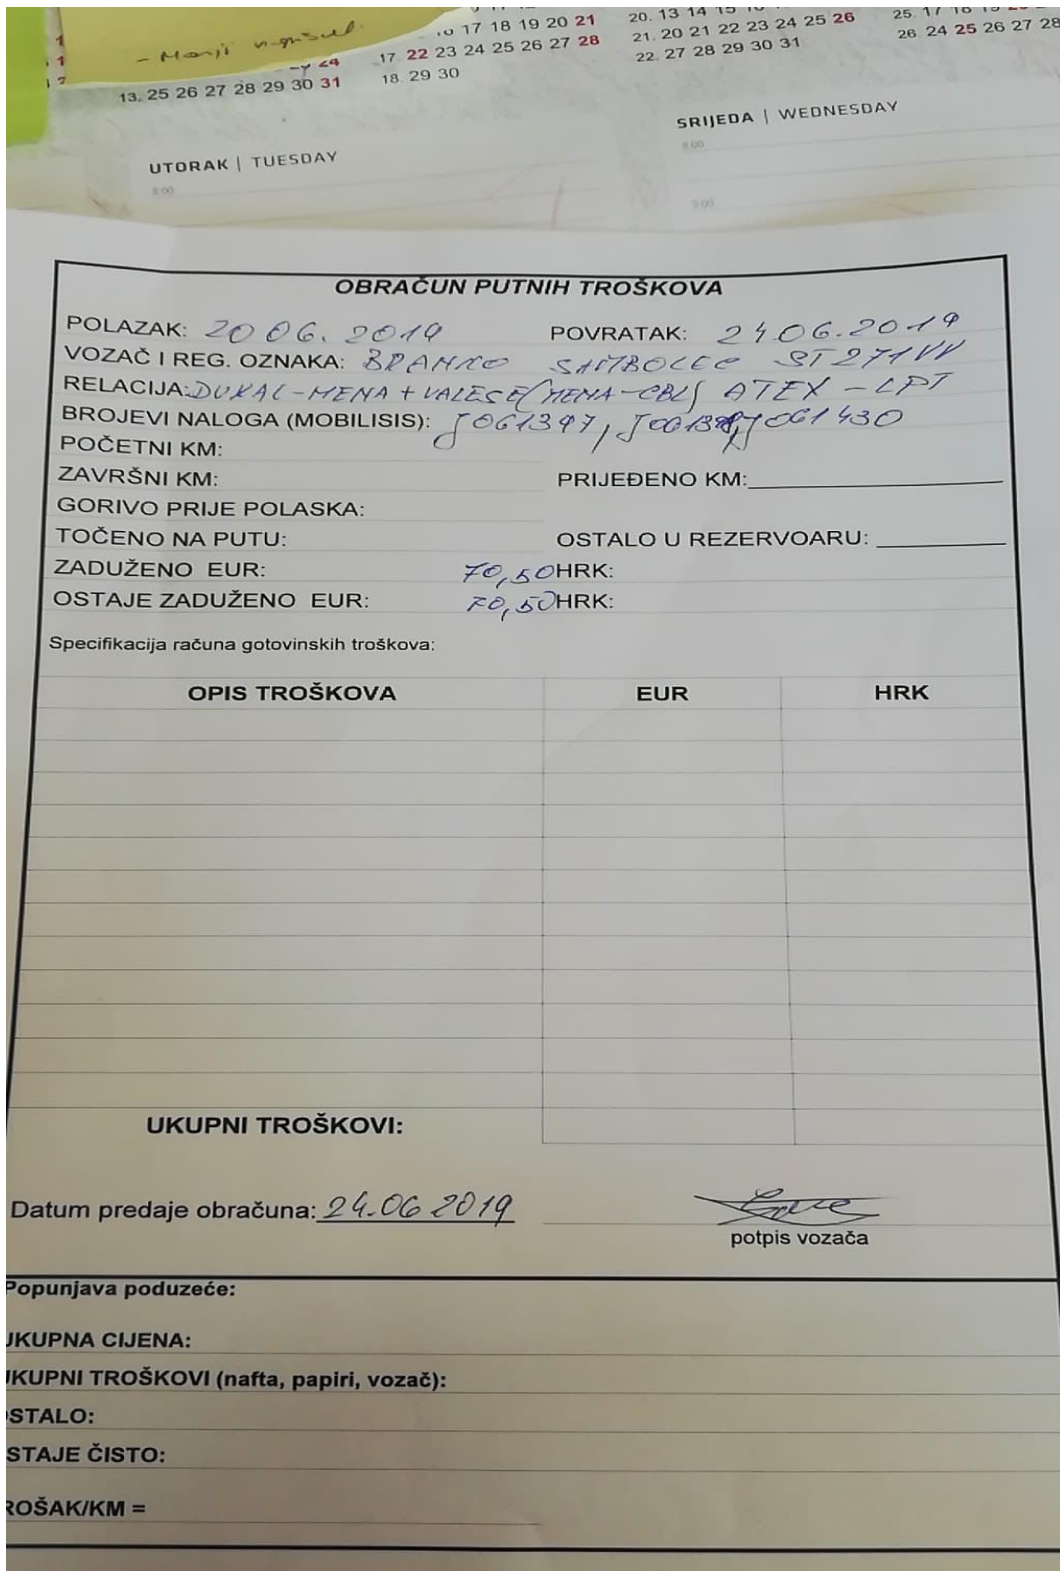 - Manji
17 18 19 20 21
17. 22 23 24 25 26 27 28
18. 29 30
24
13. 25 26 27 28 29 30 31
20. 13 14 15 16
21. 20 21 22 23 24 25 26
22. 27 28 29 30 31
25. 17 18 19
26. 24 25 26 27 28
UTORAK | TUESDAY
8:00
SRIJEDA | WEDNESDAY
8:00
9:00
OBRAČUN PUTNIH TROŠKOVA
POLAZAK: 20 06. 2019 POVRATAK: 24.06.2019
VOZAČ I REG. OZNAKA: BRANKO SAMBOLEC ST271VV
RELACIJA: DUKAL-MENA + VALESE(MENA-CBL) ATEX - LPT
BROJEVI NALOGA (MOBILISIS): J061397, J061430
POČETNI KM:
ZAVRŠNI KM: PRIJEĐENO KM:
GORIVO PRIJE POLASKA:
TOČENO NA PUTU: OSTALO U REZERVOARU:
ZADUŽENO EUR: 70,50 HRK:
OSTAJE ZADUŽENO EUR: 70,50 HRK:
Specifikacija računa gotovinskih troškova:
OPIS TROŠKOVA EUR HRK
UKUPNI TROŠKOVI:
Datum predaje obračuna: 24.06 2019
potpis vozača
Popunjava poduzeće:
UKUPNA CIJENA:
UKUPNI TROŠKOVI (nafta, papiri, vozač):
OSTALO:
OSTAJE ČISTO:
TROŠAK/KM =